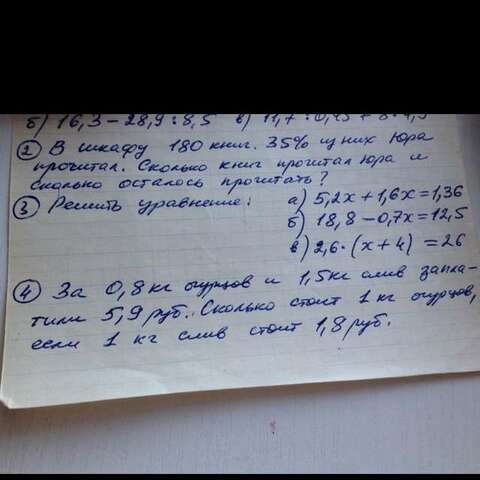 б) 16,3 - 28,9 : 8,5 в)
② В шкафу 180 книг. 35% из них Юра
прочитал. Сколько книг прочитал Юра и
сколько осталось прочитать?
③ Решить уравнение: а) 5,2х + 1,6х = 1,36
б) 18,8 - 0,7х = 12,5
в) 2,6 · (х + 4) = 26
④ За 0,8 кг огурцов и 1,5 кг слив запла-
тили 5,9 руб. Сколько стоит 1 кг огурцов,
если 1 кг слив стоит 1,8 руб.